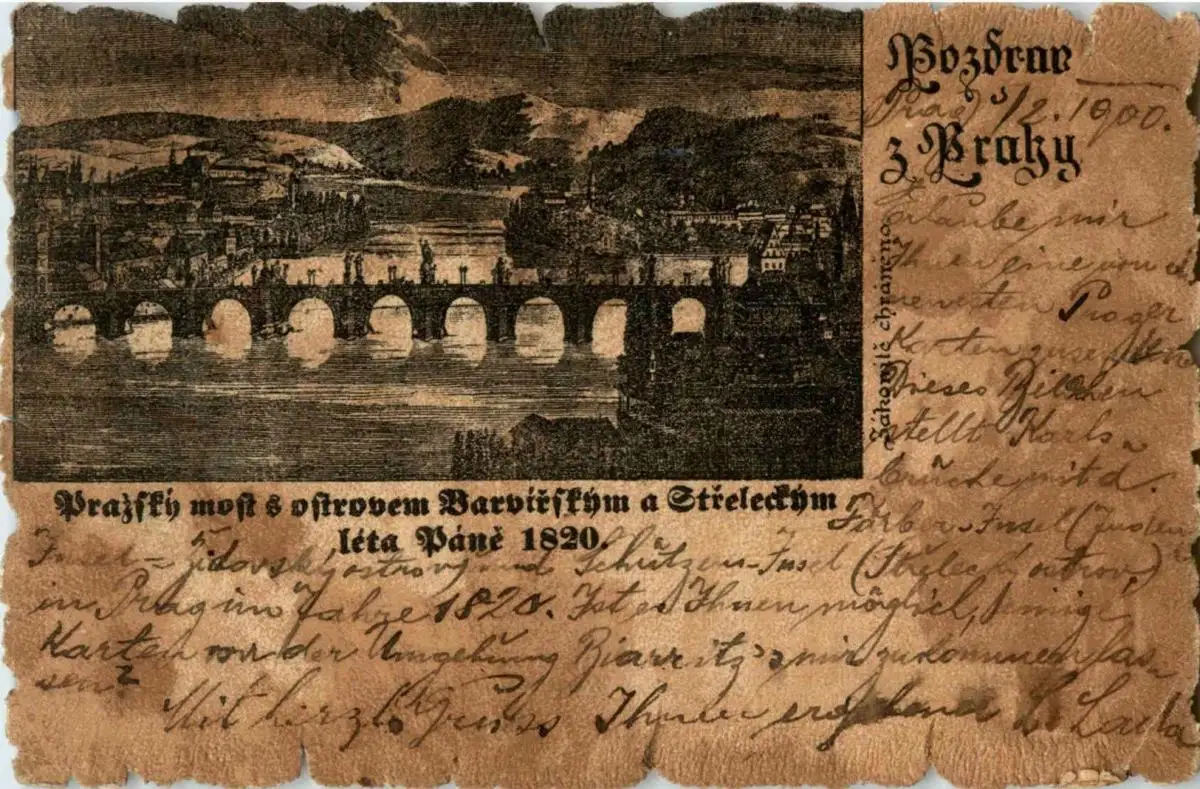 Pozdrav
Prag, 5/2. 1900.
z Prahy
Erlaube mir
Ihnen eine von d.
neuesten Prager
Karten zusenden
Dieses Bildchen
stellt Karls-
brücke mit d.
Farb-Insel (Juden
Insel = Židovský ostrov) und Schützen-Insel (Střelecký ostrov)
in Prag im Jahre 1820. Ist es Ihnen möglich, einige
Karten von der Umgebung Biarritz's mir zukommen las-
sen?
Mit herzl. Gruss Ihnen ergebener
Zákonitě chráněno.
Pražský most s ostrovem Barvířským a Střeleckým
léta Páně 1820.